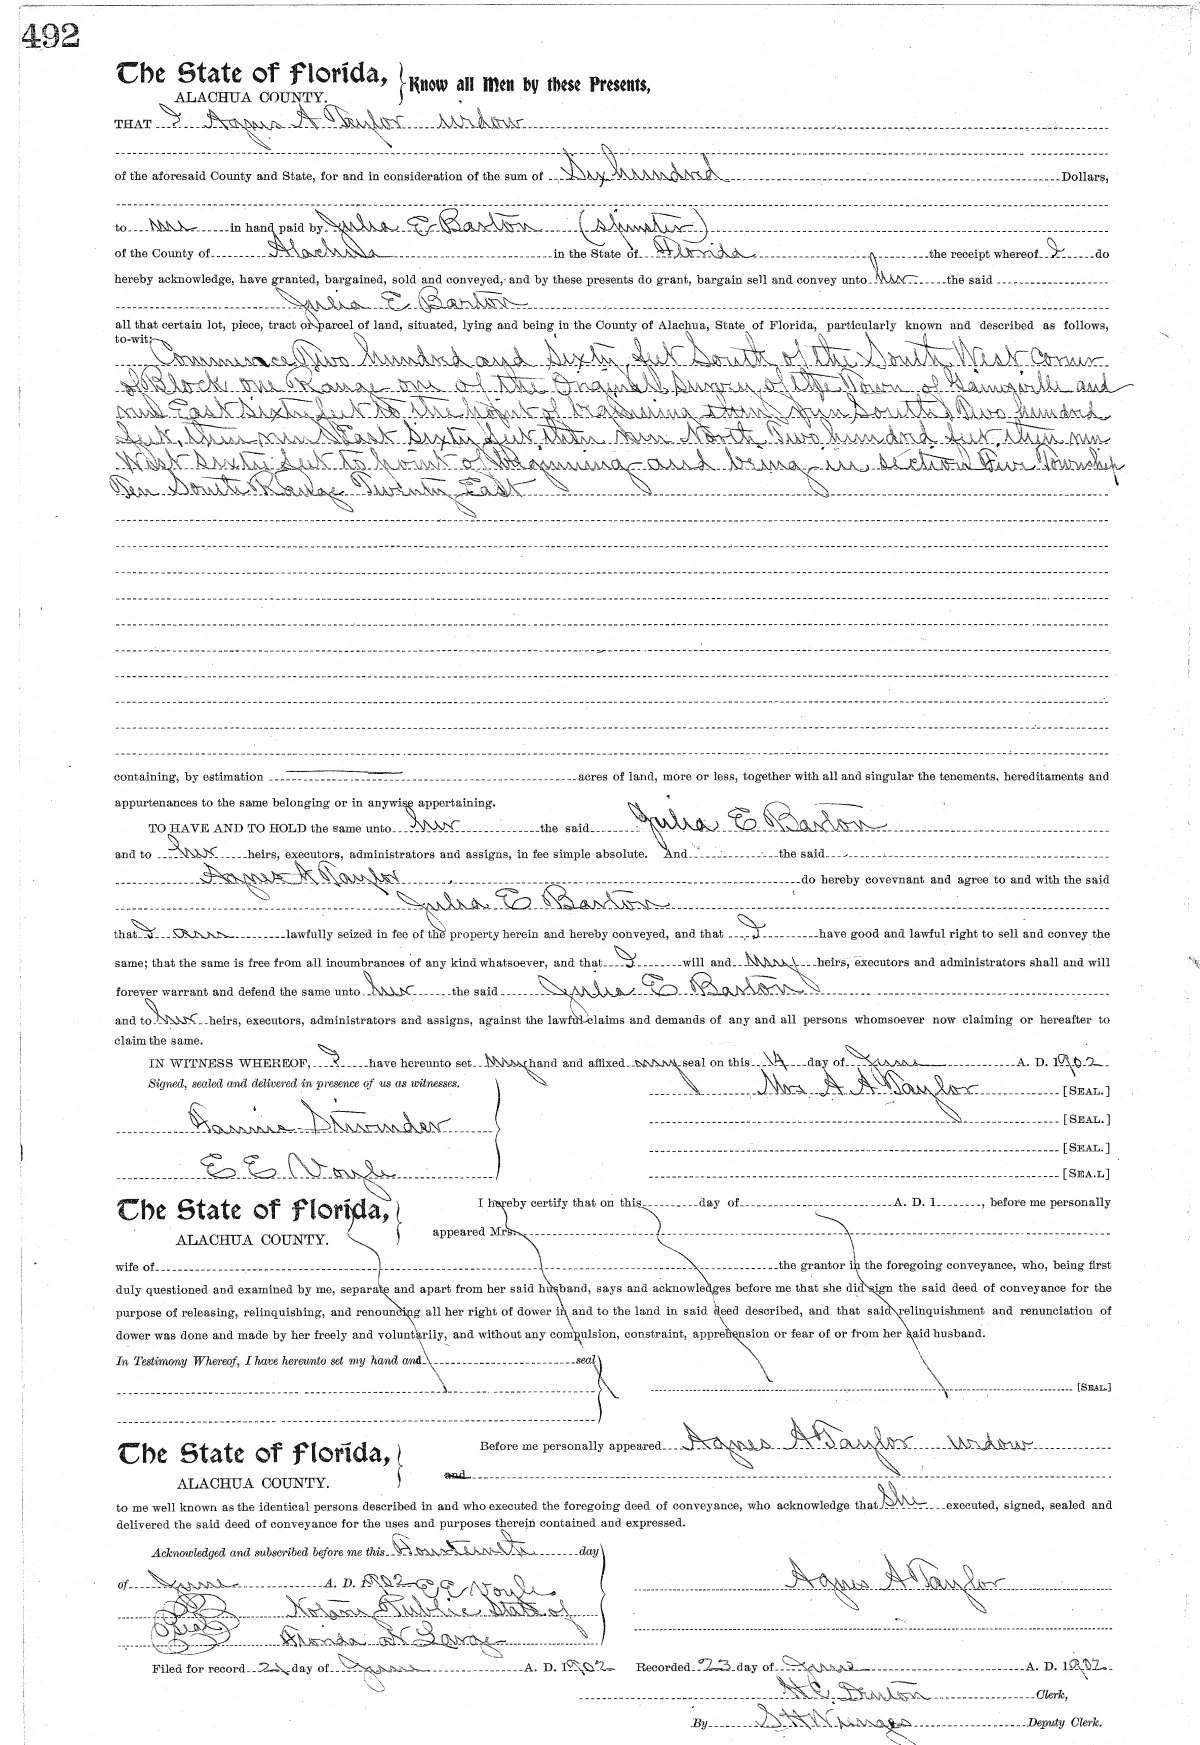 492
The State of Florida, Know all Men by these Presents,
ALACHUA COUNTY.
THAT I Agnes A Taylor widow
of the aforesaid County and State, for and in consideration of the sum of Six hundred Dollars,
to me in hand paid by Julia E Barton (spinster)
of the County of Alachua in the State of Florida the receipt whereof I do
hereby acknowledge, have granted, bargained, sold and conveyed, and by these presents do grant, bargain sell and convey unto her the said
Julia E Barton
all that certain lot, piece, tract or parcel of land, situated, lying and being in the County of Alachua, State of Florida, particularly known and described as follows,
to-wit:
Commence Two hundred and Sixty feet South of the South West corner
of Block one Range one of the Original Survey of the Town of Gainesville and
run East Sixty feet to the point of beginning run South Two hundred
feet, then run East Sixty feet then run North Two hundred feet, then run
West sixty feet to point of beginning and being in section Five Township
Ten South Range Twenty East
containing, by estimation acres of land, more or less, together with all and singular the tenements, hereditaments and
appurtenances to the same belonging or in anywise appertaining.
TO HAVE AND TO HOLD the same unto her the said Julia E Barton
and to her heirs, executors, administrators and assigns, in fee simple absolute. And the said
Agnes A Taylor do hereby covevnant and agree to and with the said
Julia E Barton
that I am lawfully seized in fee of the property herein and hereby conveyed, and that I have good and lawful right to sell and convey the
same; that the same is free from all incumbrances of any kind whatsoever, and that I will and my heirs, executors and administrators shall and will
forever warrant and defend the same unto her the said Julia E Barton
and to her heirs, executors, administrators and assigns, against the lawful claims and demands of any and all persons whomsoever now claiming or hereafter to
claim the same.
IN WITNESS WHEREOF, I have hereunto set my hand and affixed my seal on this 14 day of June A. D. 1902
Signed, sealed and delivered in presence of us as witnesses. Mrs A A Taylor [SEAL.]
Fannie [SEAL.]
[SEAL.]
E E Voyle [SEA.L]
The State of Florida, I hereby certify that on this day of A. D. 1 , before me personally
ALACHUA COUNTY. appeared Mrs.
wife of the grantor in the foregoing conveyance, who, being first
duly questioned and examined by me, separate and apart from her said husband, says and acknowledges before me that she did sign the said deed of conveyance for the
purpose of releasing, relinquishing, and renouncing all her right of dower in and to the land in said deed described, and that said relinquishment and renunciation of
dower was done and made by her freely and voluntarily, and without any compulsion, constraint, apprehension or fear of or from her said husband.
In Testimony Whereof, I have hereunto set my hand and seal
[SEAL.]
The State of Florida, Before me personally appeared Agnes A Taylor widow
ALACHUA COUNTY. and
to me well known as the identical persons described in and who executed the foregoing deed of conveyance, who acknowledge that she executed, signed, sealed and
delivered the said deed of conveyance for the uses and purposes therein contained and expressed.
Acknowledged and subscribed before me this Fourteenth day
of June A. D. 1902 E E Voyle Agnes A Taylor
Seal Notary Public State of
Florida at Large
Filed for record 21 day of June A. D. 1902 Recorded 23 day of June A. D. 1902
H C Denton Clerk,
By S H Wienges Deputy Clerk.